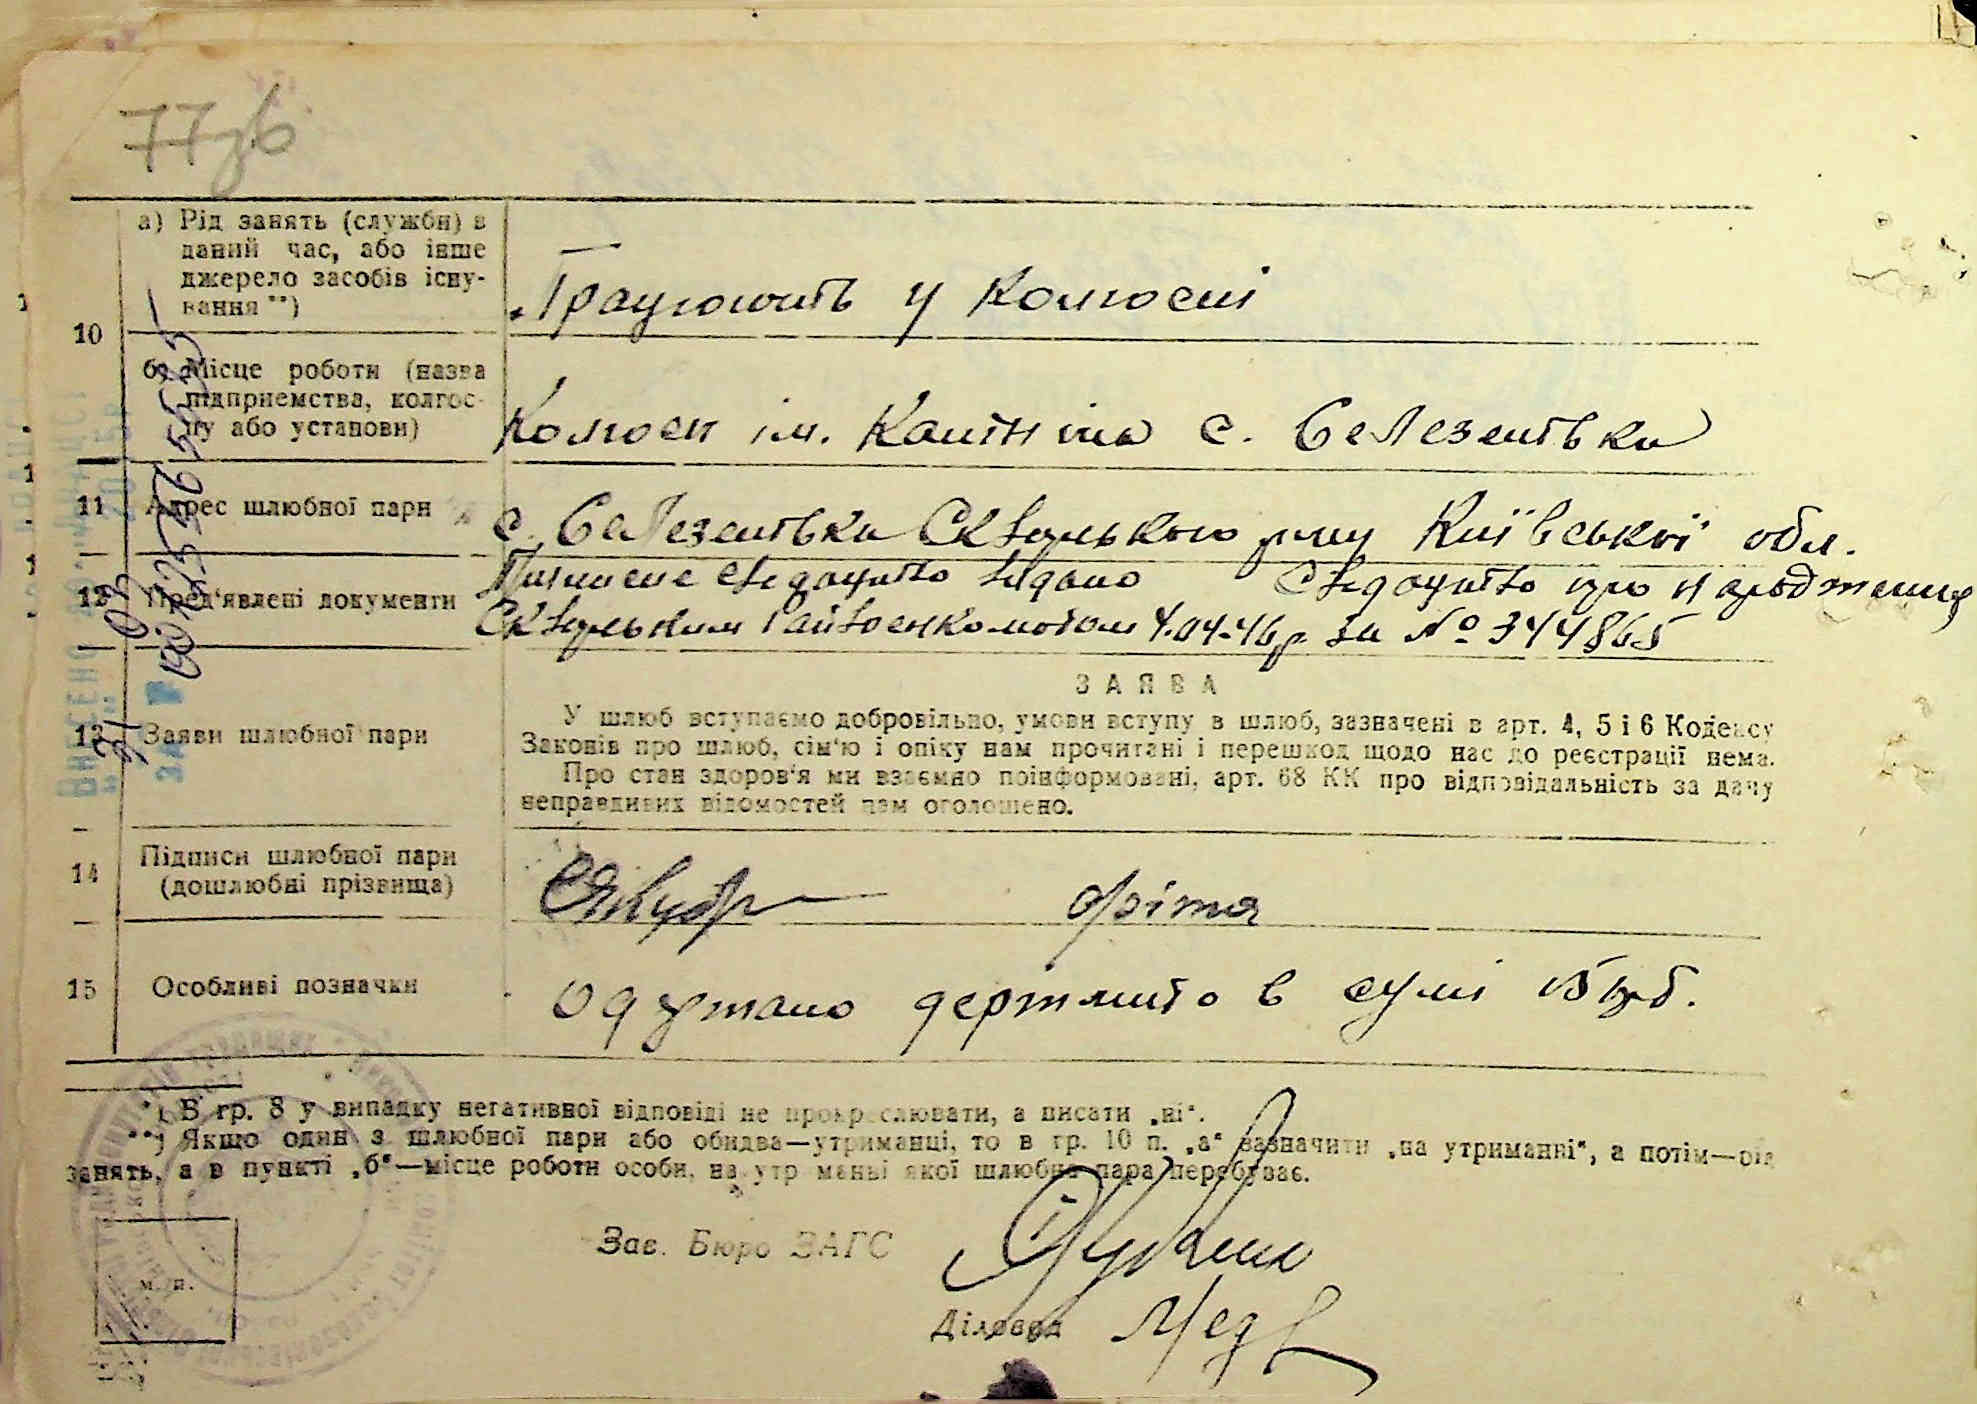 77зв
а) Рід занять (служби) в
даний час, або інше
джерело засобів існу-
вання **)
Працюють у колгоспі
10
б) Місце роботи (назва
підприємства, колгос-
пу або установи)
Колгосп ім. Калініна с. Селезенівка
11 Адрес шлюбної пари
с. Селезенівка Сквирського р-ну Київської обл.
12 Пред'явлені документи
свідоцтво видано Свідоцтво про народження
Сквирським Райвоєнкоматом 4.04.46р. за № 344865
13 Заяви шлюбної пари
ЗАЯВА
У шлюб вступаємо добровільно, умови вступу в шлюб, зазначені в арт. 4, 5 і 6 Кодексу
Законів про шлюб, сім'ю і опіку нам прочитані і перешкод щодо нас до реєстрації нема.
Про стан здоров'я ми взаємно поінформовані, арт. 68 КК про відповідальність за дачу
неправдивих відомостей нам оголошено.
14 Підписи шлюбної пари
(дошлюбні прізвища)
15 Особливі позначки
Одержано держмито в сумі 15 крб.
*) В гр. 8 у випадку негативної відповіді не прокреслювати, а писати „ні“.
**) Якщо один з шлюбної пари або обидва—утриманці, то в гр. 10 п. „а“ зазначити „на утриманні“, а потім—рід
занять, а в пункті „б“—місце роботи особи, на утриманні якої шлюбна пара перебуває.
Зав. Бюро ЗАГС
м. п.
Діловод